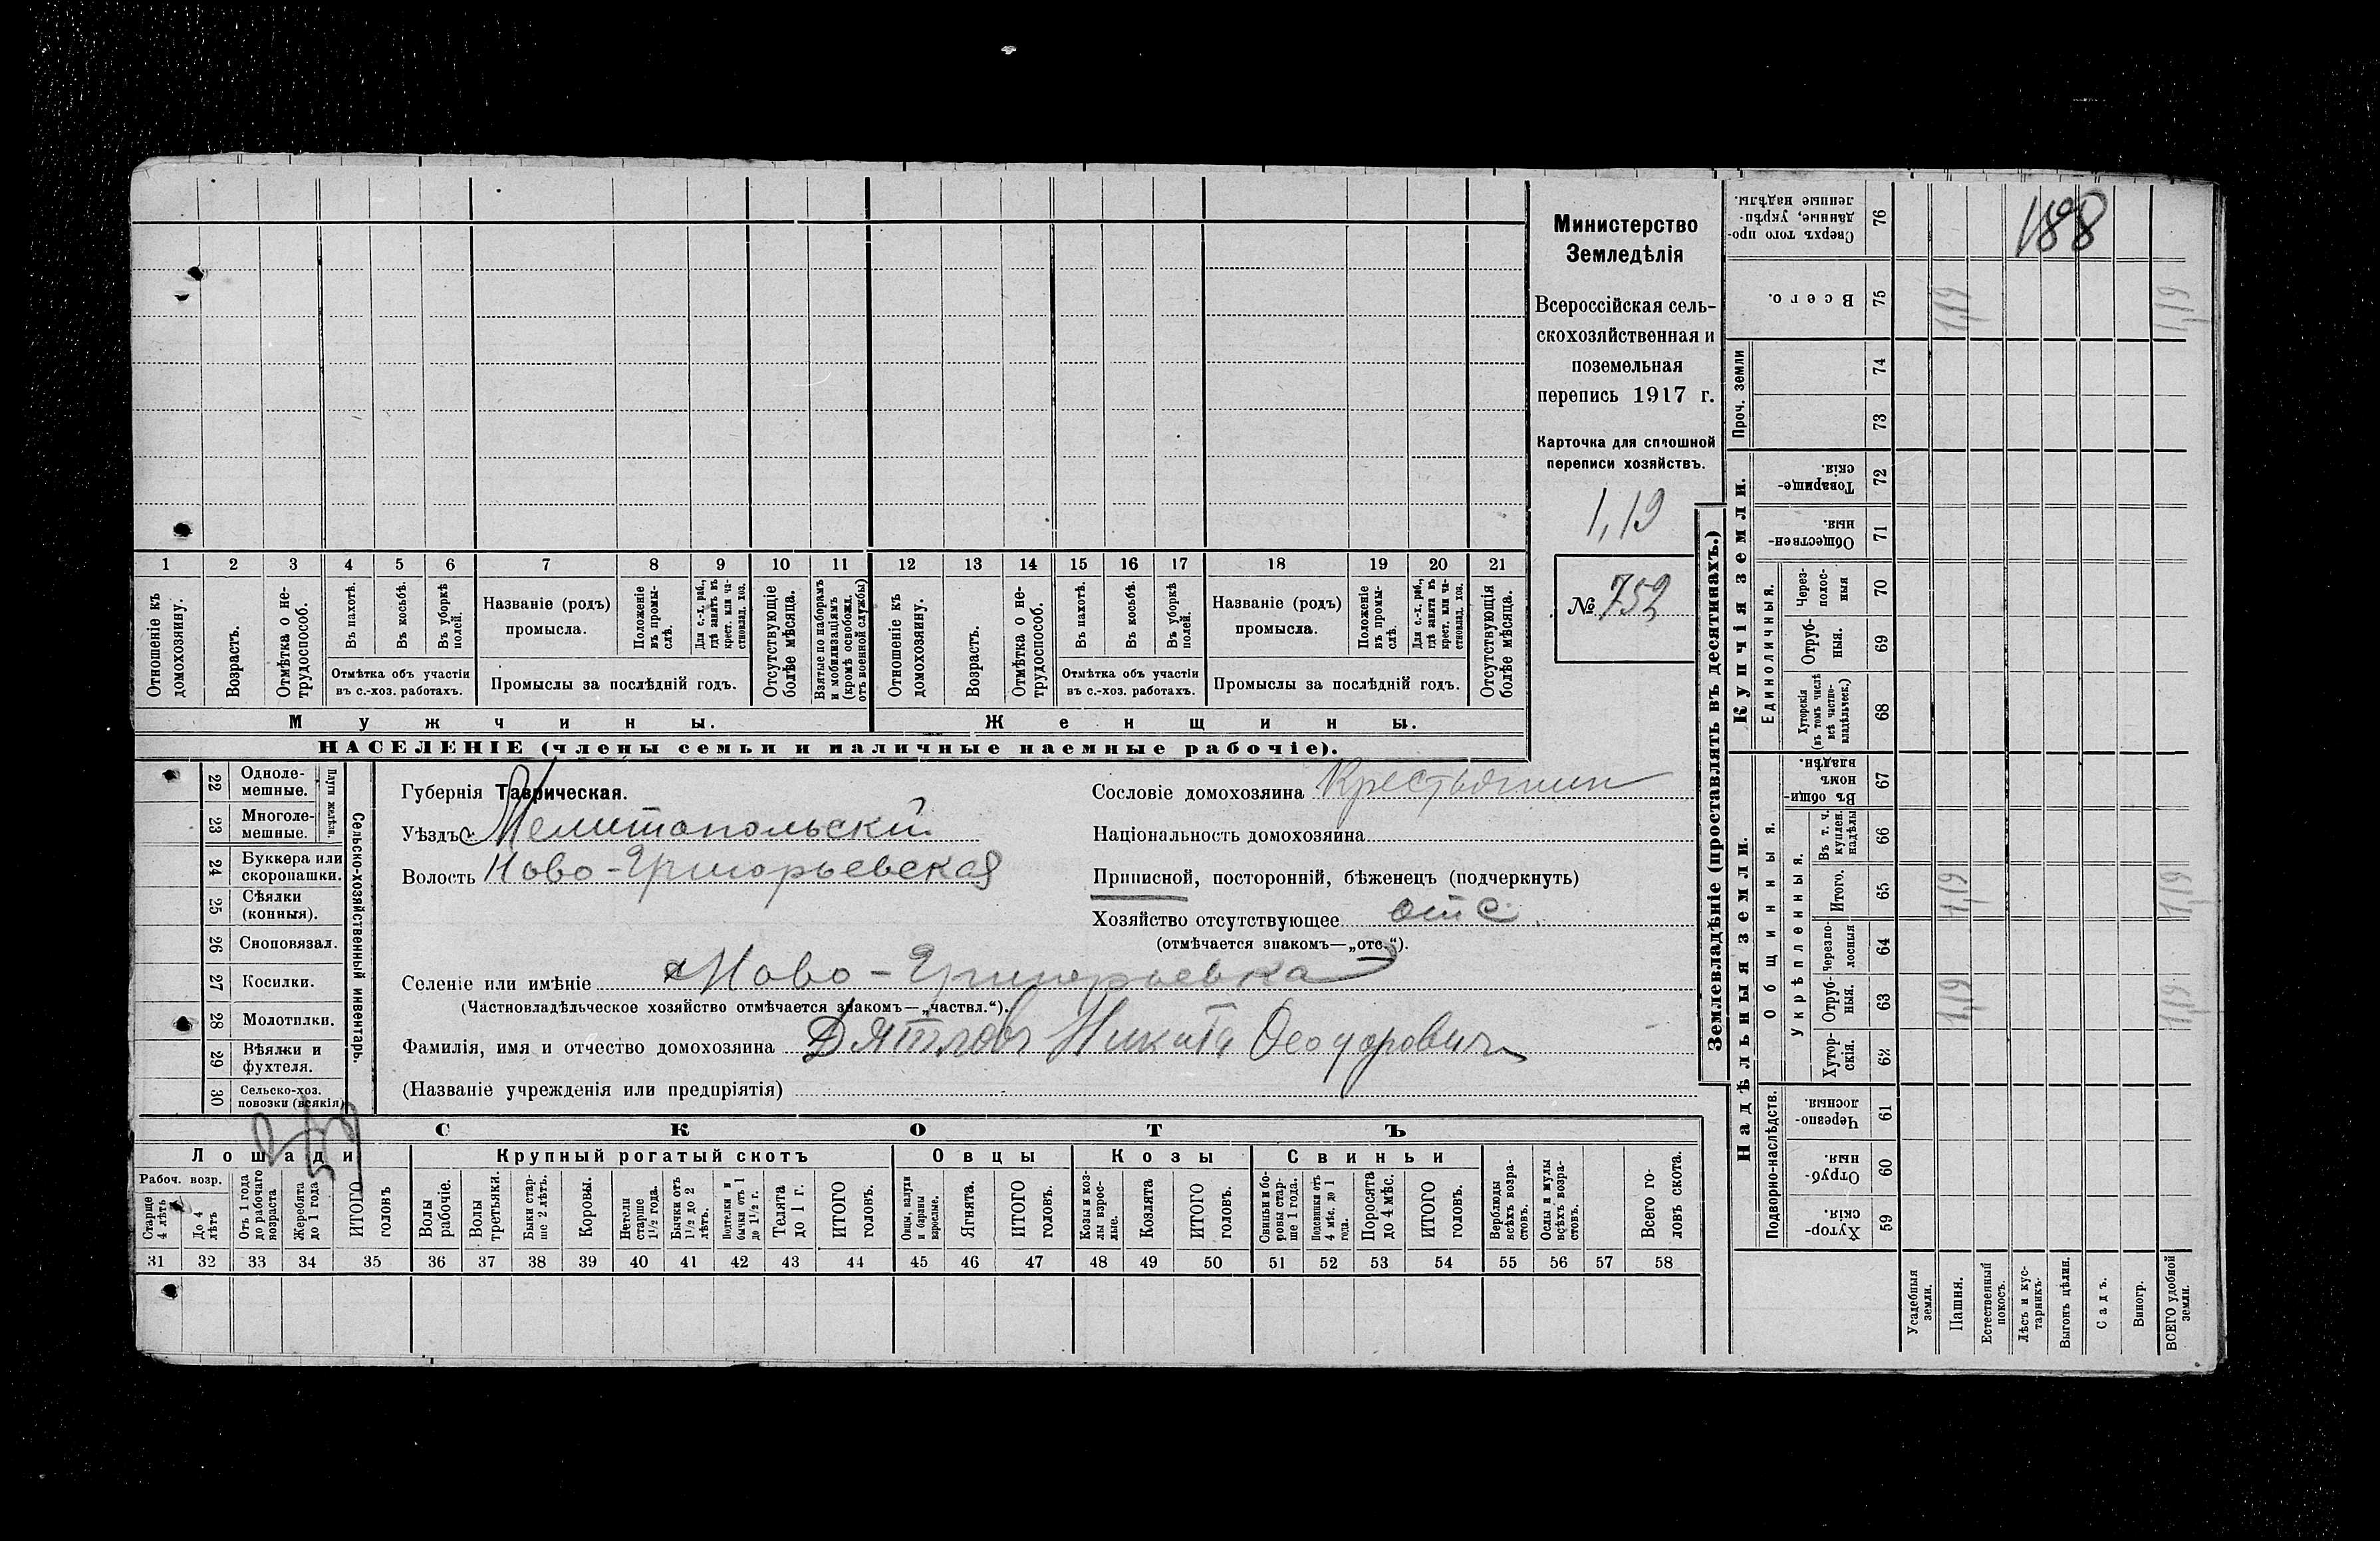 188
Министерство
Земледѣлія
Всероссійская сель-
скохозяйственная и
поземельная
перепись 1917 г.
Карточка для сплошной
переписи хозяйствъ.
1,19
№ 752
1 2 3 4 5 6 7 8 9 10 11 12 13 14 15 16 17 18 19 20 21
Отношеніе къ домохозяину.
Возрастъ.
Отмѣтка о не-трудоспособ.
Въ пахотѣ.
Въ косьбѣ.
Въ уборкѣ полей.
Отмѣтка объ участіи
въ с.-хоз. работахъ.
Названіе (родъ)
промысла.
Положеніе въ промы-слѣ.
Для с.-х. раб., гдѣ занятъ въ крест. или ча-стновлад. хоз.
Промыслы за послѣдній годъ.
Отсутствующіе болѣе мѣсяца.
Взятые по наборамъ и мобилизаціямъ (кромѣ освобожд. отъ военной службы)
Отношеніе къ домохозяину.
Возрастъ.
Отмѣтка о не-трудоспособ.
Въ пахотѣ.
Въ косьбѣ.
Въ уборкѣ полей.
Отмѣтка объ участіи
въ с.-хоз. работахъ.
Названіе (родъ)
промысла.
Положеніе въ промы-слѣ.
Для с.-х. раб., гдѣ занята въ крест. или ча-стновлад. хоз.
Промыслы за послѣдній годъ.
Отсутствующія болѣе мѣсяца.
Мужчины.
Женщины.
НАСЕЛЕНІЕ (члены семьи и наличные наемные рабочіе).
22 Одноле-мешные.
23 Многоле-мешные.
Плуги желѣзн.
24 Буккера или скоропашки.
25 Сѣялки (конныя).
26 Сноповязал.
27 Косилки.
28 Молотилки.
29 Вѣялки и фухтеля.
30 Сельско-хоз. повозки (всякія)
Сельско-хозяйственный инвентарь.
Губернія Таврическая.
Уѣздъ Мелитопольскій
Волость Ново-Григорьевская
Сословіе домохозяина Крестьянин
Національность домохозяина
Приписной, посторонній, бѣженецъ (подчеркнуть)
Хозяйство отсутствующее отс.
(отмѣчается знакомъ—„отс.“).
Селеніе или имѣніе Ново-Григорьевка
(Частновладѣльческое хозяйство отмѣчается знакомъ—„частвл.“).
Фамилія, имя и отчество домохозяина Дятловъ Никита Феодорович
(Названіе учрежденія или предпріятія)
СКОТЪ
Лошади
Крупный рогатый скотъ
Овцы
Козы
Свиньи
Рабоч. возр.
Старше 4 лѣтъ
До 4 лѣтъ
Отъ 1 года до рабочаго возраста
Жеребята до 1 года
ИТОГО головъ
Волы рабочіе.
Волы третьяки.
Быки стар-ше 2 лѣтъ.
Коровы.
Нетели старше 1½ года.
Бычки отъ 1½ до 2 лѣтъ.
Подтелки и бычки отъ 1 до 1½ г.
Телята до 1 г.
ИТОГО головъ.
Овцы, валухи и бараны взрослые.
Ягнята.
ИТОГО головъ.
Козы и коз-лы взрос-лые.
Козлята
ИТОГО головъ.
Свиньи и бо-ровы стар-ше 1 года.
Подсвинки отъ 4 мѣс. до 1 года.
Поросята до 4 мѣс.
ИТОГО головъ.
Верблюды всѣхъ возра-стовъ.
Ослы и мулы всѣхъ возра-стовъ.
Всего го-ловъ скота.
31 32 33 34 35 36 37 38 39 40 41 42 43 44 45 46 47 48 49 50 51 52 53 54 55 56 57 58
Землевладѣніе (проставлять въ десятинахъ.)
Купчія земли.
Надѣльныя земли.
Проч. земли
Единоличныя.
Общинныя.
Укрѣпленныя.
Подворно-наслѣдств.
Сверхъ того про-данные, укрѣп-ленные надѣлы. 76
Всего. 75 1,19 1,19
74
73
Товарище-скія. 72
Обществен-ныя. 71
Через-полос-ныя 70
Отруб-ныя. 69
Хуторскія (въ томъ числѣ всѣ частно-владѣльческ.) 68
Въ общи-номъ владѣн. 67
Въ т. ч. куплен. надѣлы 66
Итого. 65 1,19 1,19
Черезпо-лосныя 64
Отруб-ныя. 63 1,19 1,19
Хутор-скія. 62
Черезпо-лосныя. 61
Отруб-ныя. 60
Хутор-скія. 59
Усадебныя земли.
Пашня.
Естественный покосъ.
Лѣсъ и кус-тарникъ.
Выгонъ цѣлин.
Садъ.
Виногр.
ВСЕГО удобной земли.